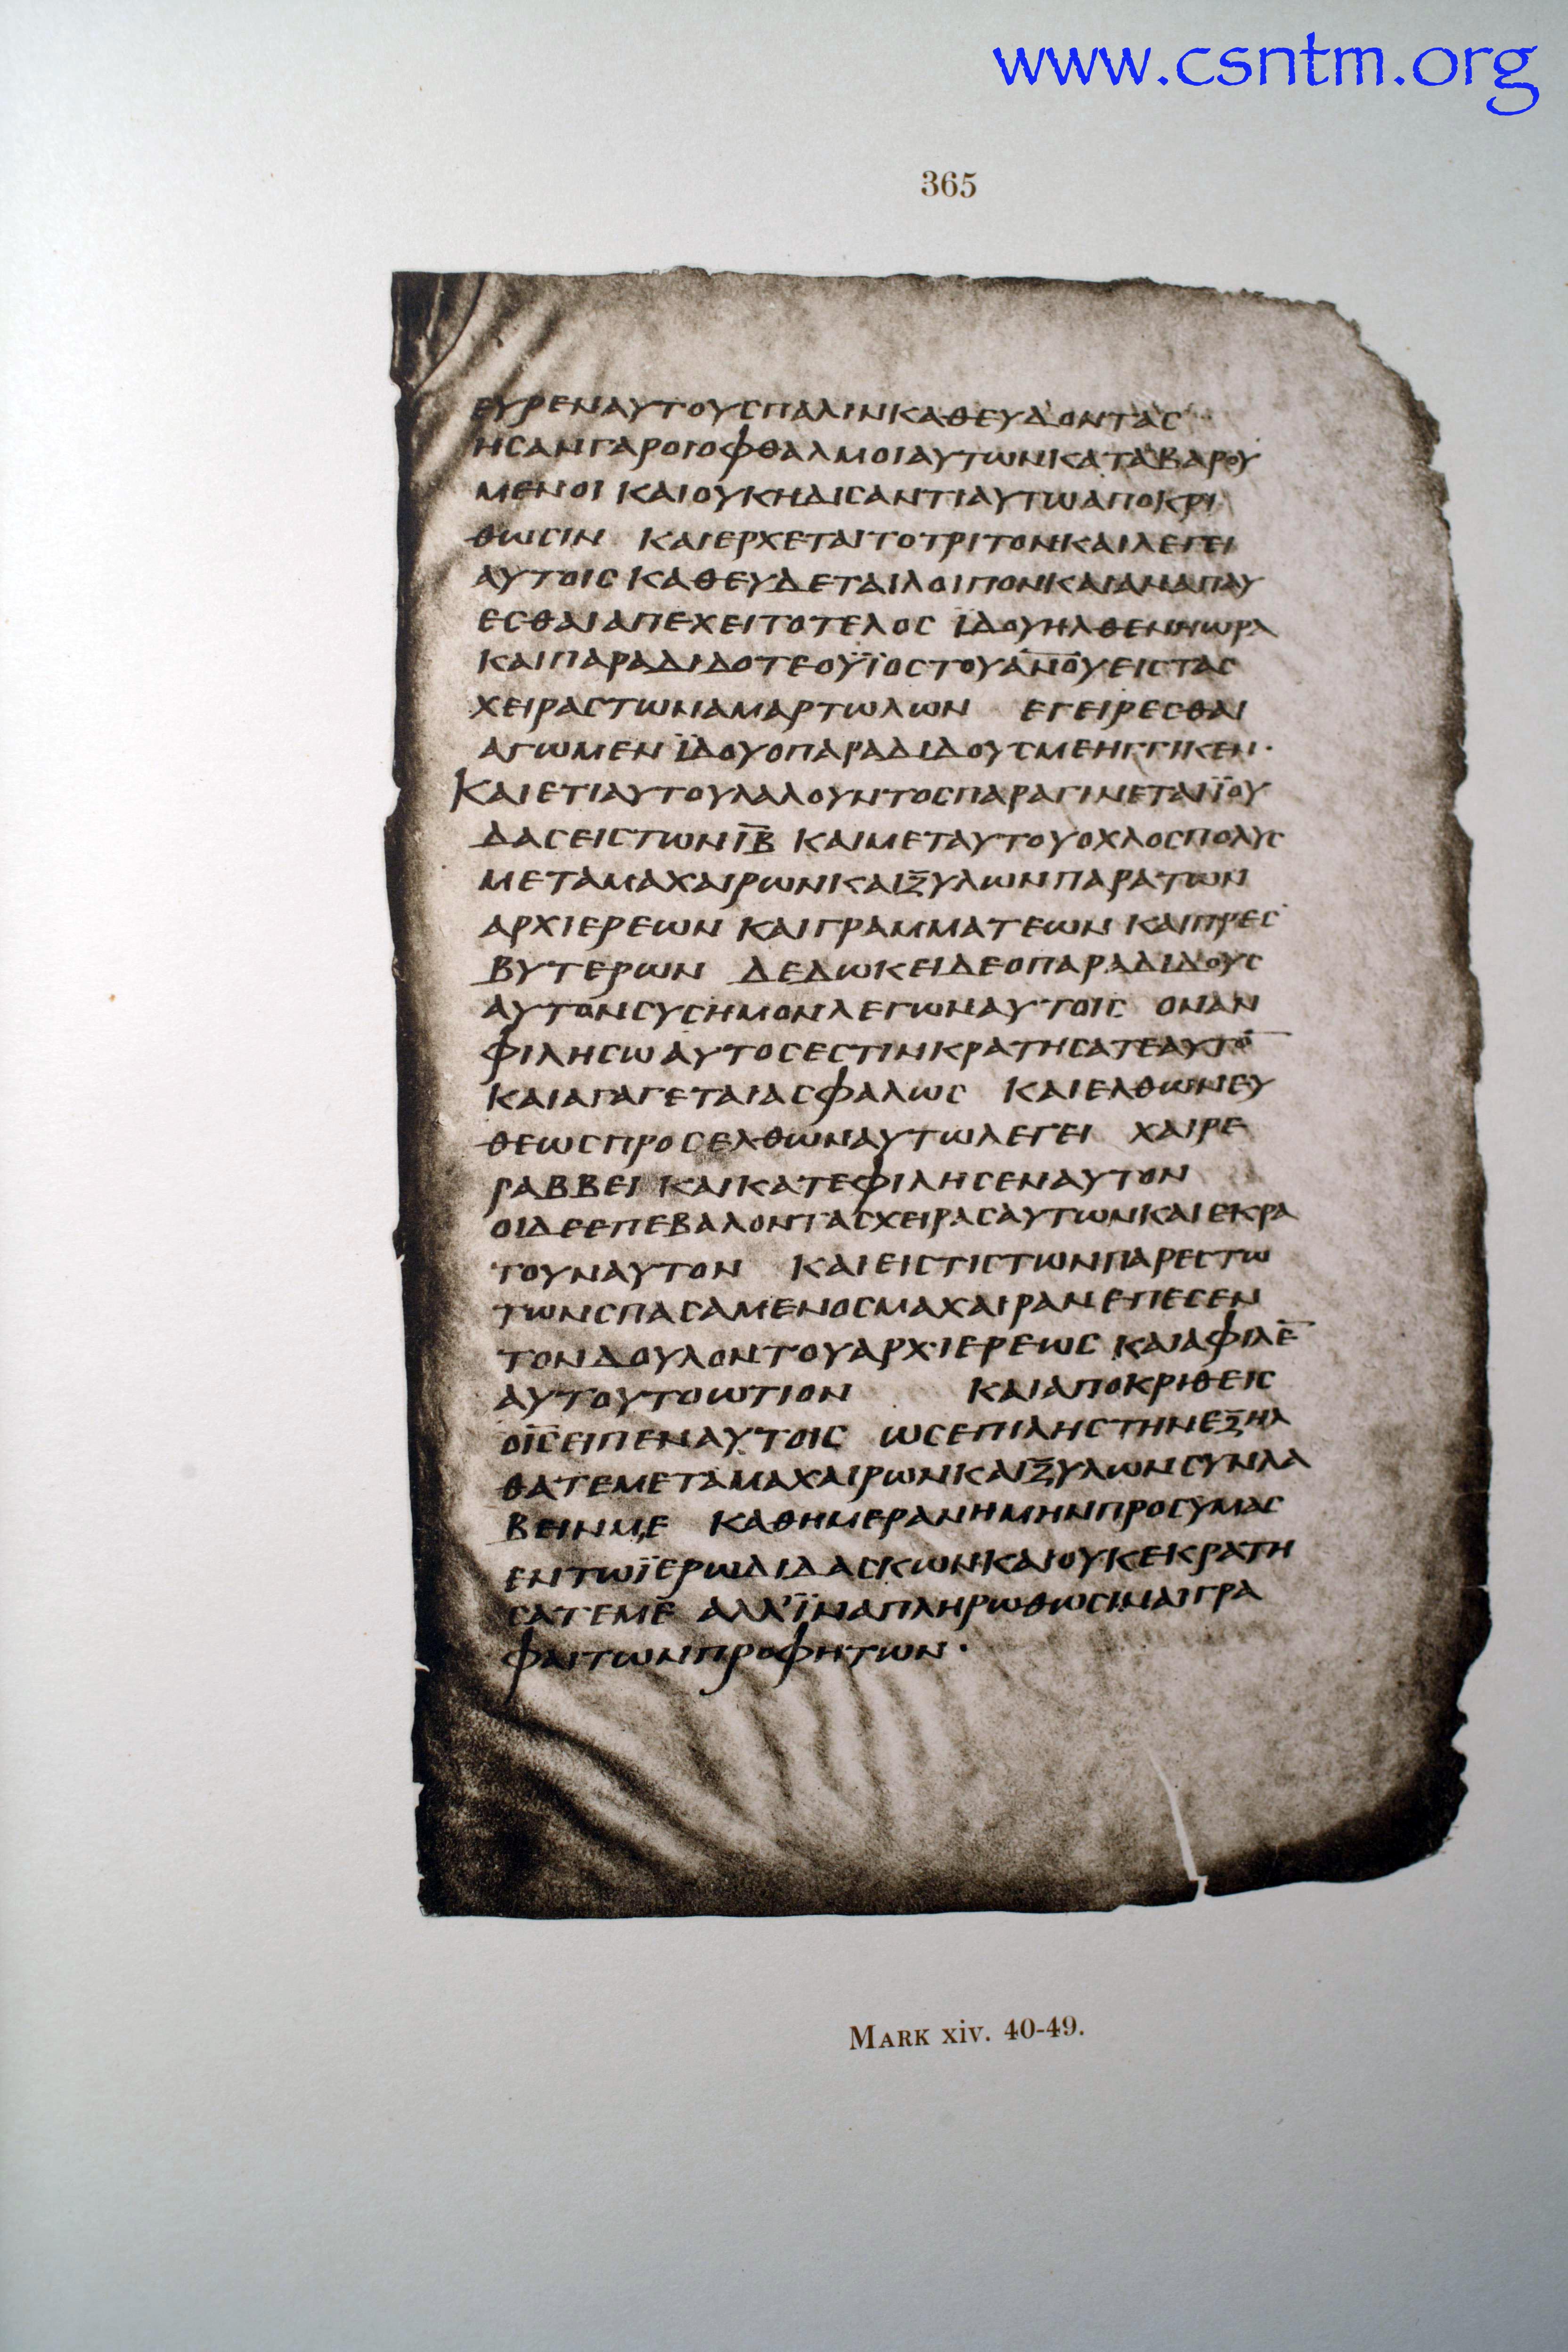 www.csntm.org
365
ΕΥΡΕΝΑΥΤΟΥСΠΑΛΙΝΚΑΘΕΥΔΟΝΤΑС
ΗСΑΝΓΑΡΟΙΟΦΘΑΛΜΟΙΑΥΤΩΝΚΑΤΑΒΑΡΟΥ
ΜΕΝΟΙ ΚΑΙΟΥΚΗΔΙСΑΝΤΙΑΥΤΩΑΠΟΚΡΙ
ΘΩСΙΝ ΚΑΙΕΡΧΕΤΑΙΤΟΤΡΙΤΟΝΚΑΙΛΕΓΕΙ
ΑΥΤΟΙС ΚΑΘΕΥΔΕΤΑΙΛΟΙΠΟΝΚΑΙΑΝΑΠΑΥ
ΕСΘΑΙΑΠΕΧΕΙΤΟΤΕΛΟС ΪΔΟΥΗΛΘΕΝΗΩΡΑ
ΚΑΙΠΑΡΑΔΙΔΟΤΕΟΫΪΟСΤΟΥΑ̅Ν̅Ο̅Υ̅ΕΙСΤΑС
ΧΕΙΡΑСΤΩΝΑΜΑΡΤΩΛΩΝ ΕΓΕΙΡΕСΘΑΙ
ΑΓΩΜΕΝ ΪΔΟΥΟΠΑΡΑΔΙΔΟΥСΜΕΗΓΓΙΚΕΝ·
ΚΑΙΕΤΙΑΥΤΟΥΛΑΛΟΥΝΤΟСΠΑΡΑΓΙΝΕΤΑΙΪΟΥ
ΔΑСΕΙСΤΩΝΙ̅Β̅ ΚΑΙΜΕΤΑΥΤΟΥΟΧΛΟСΠΟΛΥС
ΜΕΤΑΜΑΧΑΙΡΩΝΚΑΙΞΥΛΩΝΠΑΡΑΤΩΝ
ΑΡΧΙΕΡΕΩΝ ΚΑΙΓΡΑΜΜΑΤΕΩΝ ΚΑΙΠΡΕС
ΒΥΤΕΡΩΝ ΔΕΔΩΚΕΙΔΕΟΠΑΡΑΔΙΔΟΥС
ΑΥΤΟΝСΥСΗΜΟΝΛΕΓΩΝΑΥΤΟΙС ΟΝΑΝ
ΦΙΛΗСΩΑΥΤΟСΕСΤΙΝΚΡΑΤΗСΑΤΕΑΥΤΟ̅
ΚΑΙΑΠΑΓΕΤΑΙΑСΦΑΛΩС ΚΑΙΕΛΘΩΝΕΥ
ΘΕΩСΠΡΟСΕΛΘΩΝΑΥΤΩΛΕΓΕΙ ΧΑΙΡΕ
ΡΑΒΒΕΙ ΚΑΙΚΑΤΕΦΙΛΗСΕΝΑΥΤΟΝ
ΟΙΔΕΕΠΕΒΑΛΟΝΤΑСΧΕΙΡΑСΑΥΤΩΝΚΑΙΕΚΡΑ
ΤΟΥΝΑΥΤΟΝ ΚΑΙΕΙСΤΙСΤΩΝΠΑΡΕСΤΩ
ΤΩΝСΠΑСΑΜΕΝΟСΜΑΧΑΙΡΑΝΕΠΕСΕΝ
ΤΟΝΔΟΥΛΟΝΤΟΥΑΡΧΙΕΡΕΩС ΚΑΙΑΦΙΛΕ̅
ΑΥΤΟΥΤΟΩΤΙΟΝ ΚΑΙΑΠΟΚΡΙΘΕΙС
ΟΙ̅С̅ΕΙΠΕΝΑΥΤΟΙС ΩСΕΠΙΛΗСΤΗΝΕΞΗΛ
ΘΑΤΕΜΕΤΑΜΑΧΑΙΡΩΝΚΑΙΞΥΛΩΝСΥΝΛΑ
ΒΕΙΝΜΕ ΚΑΘΗΜΕΡΑΝΗΜΗΝΠΡΟСΥΜΑС
ΕΝΤΩΪΕΡΩΔΙΔΑСΚΩΝΚΑΙΟΥΚΕΚΡΑΤΗ
СΑΤΕΜΕ ΑΛΛ'ΪΝΑΠΛΗΡΩΘΩСΙΝΑΙΓΡΑ
ΦΑΙΤΩΝΠΡΟΦΗΤΩΝ·
MARK xiv. 40-49.